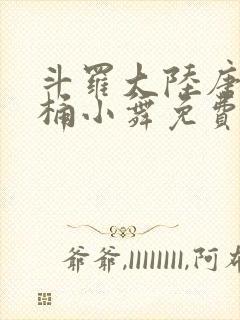 斗羅大陸唐
桶小舞免費
爺爺,llllllll,阿布